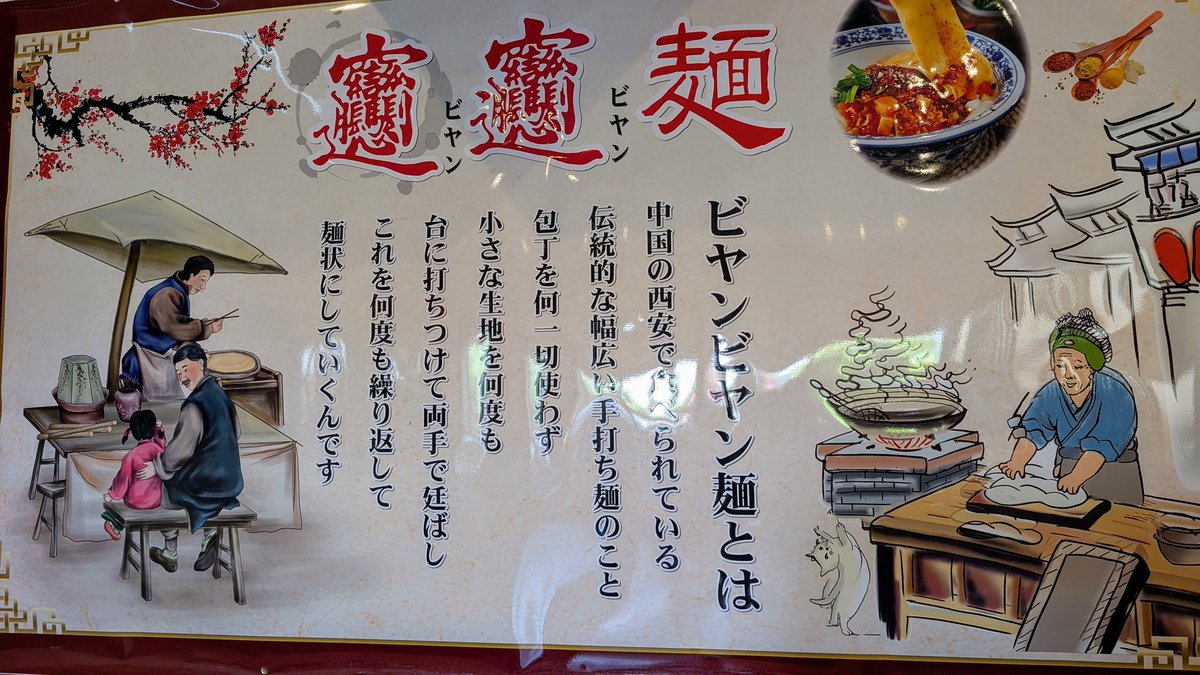 𰻝𰻝麺
ビヤン
ビヤン
ビヤンビヤン麺とは
中国の西安で食べられている
伝統的な幅広い手打ち麺のこと
包丁を何一切使わず
小さな生地を何度も
台に打ちつけて両手で廷ばし
これを何度も繰り返して
麺状にしていくんです